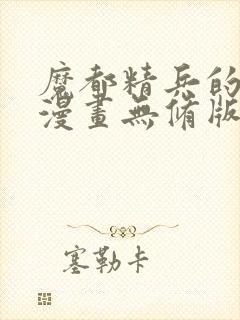 魔都精兵的
漫畫無脩版
塞勒卡